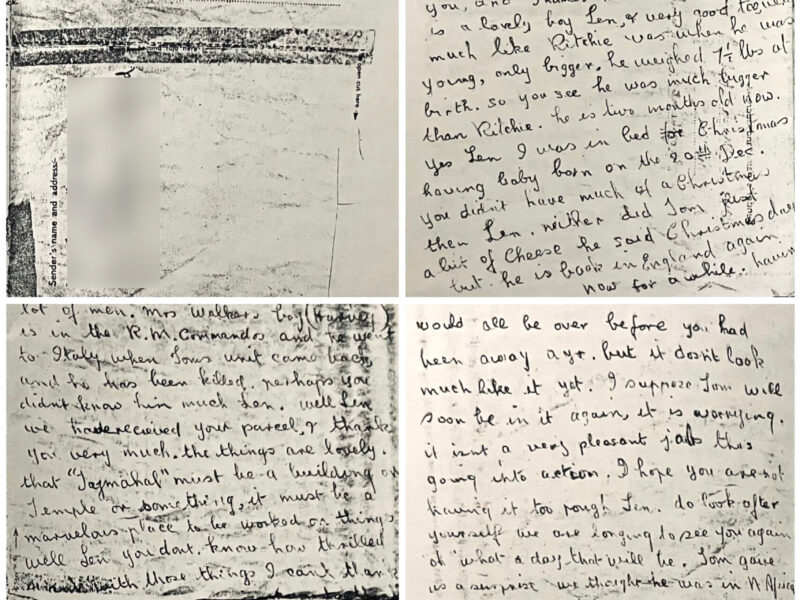 open cut here
Sender's name and address:-
you, and
is a lovely boy Len, & very good
much like Ritchie was when he was
young, only bigger. he weighed 7½ lbs at
birth. so you see he was much bigger
than Ritchie. he is two months old now.
Yes Len I was in bed for Christmas
having baby born on the 20th Dec.
you didn't have much of a Christmas
then Len. neither did Tom. Just
a bit of Cheese he said Christmas day
but he is back in England again
now for a while. having
lot of men. Mrs Walkers boy (Harvey)
is in the R.M. Commandos and he went
to Italy when Toms unit came back
and he has been killed. perhaps you
didn't know him much Len. well Len
we have received your parcel, & thank
you very much. the things are lovely.
that "Tajmahal" must be a building or
Temple or something, it must be a
marvelous place to be worked on things
well Len you dont know how thrilled
with those things I cant thank
would all be over before you had
been away a yr. but it dosnt look
much like it yet. I suppose Tom will
soon be in it again, it is worrying.
it isnt a very pleasant job this
going into action. I hope you are not
having it too rough Len. do look after
yourself we are longing to see you again
oh what a day that will be. Tom gave
us a surprise we thought he was in N Africa